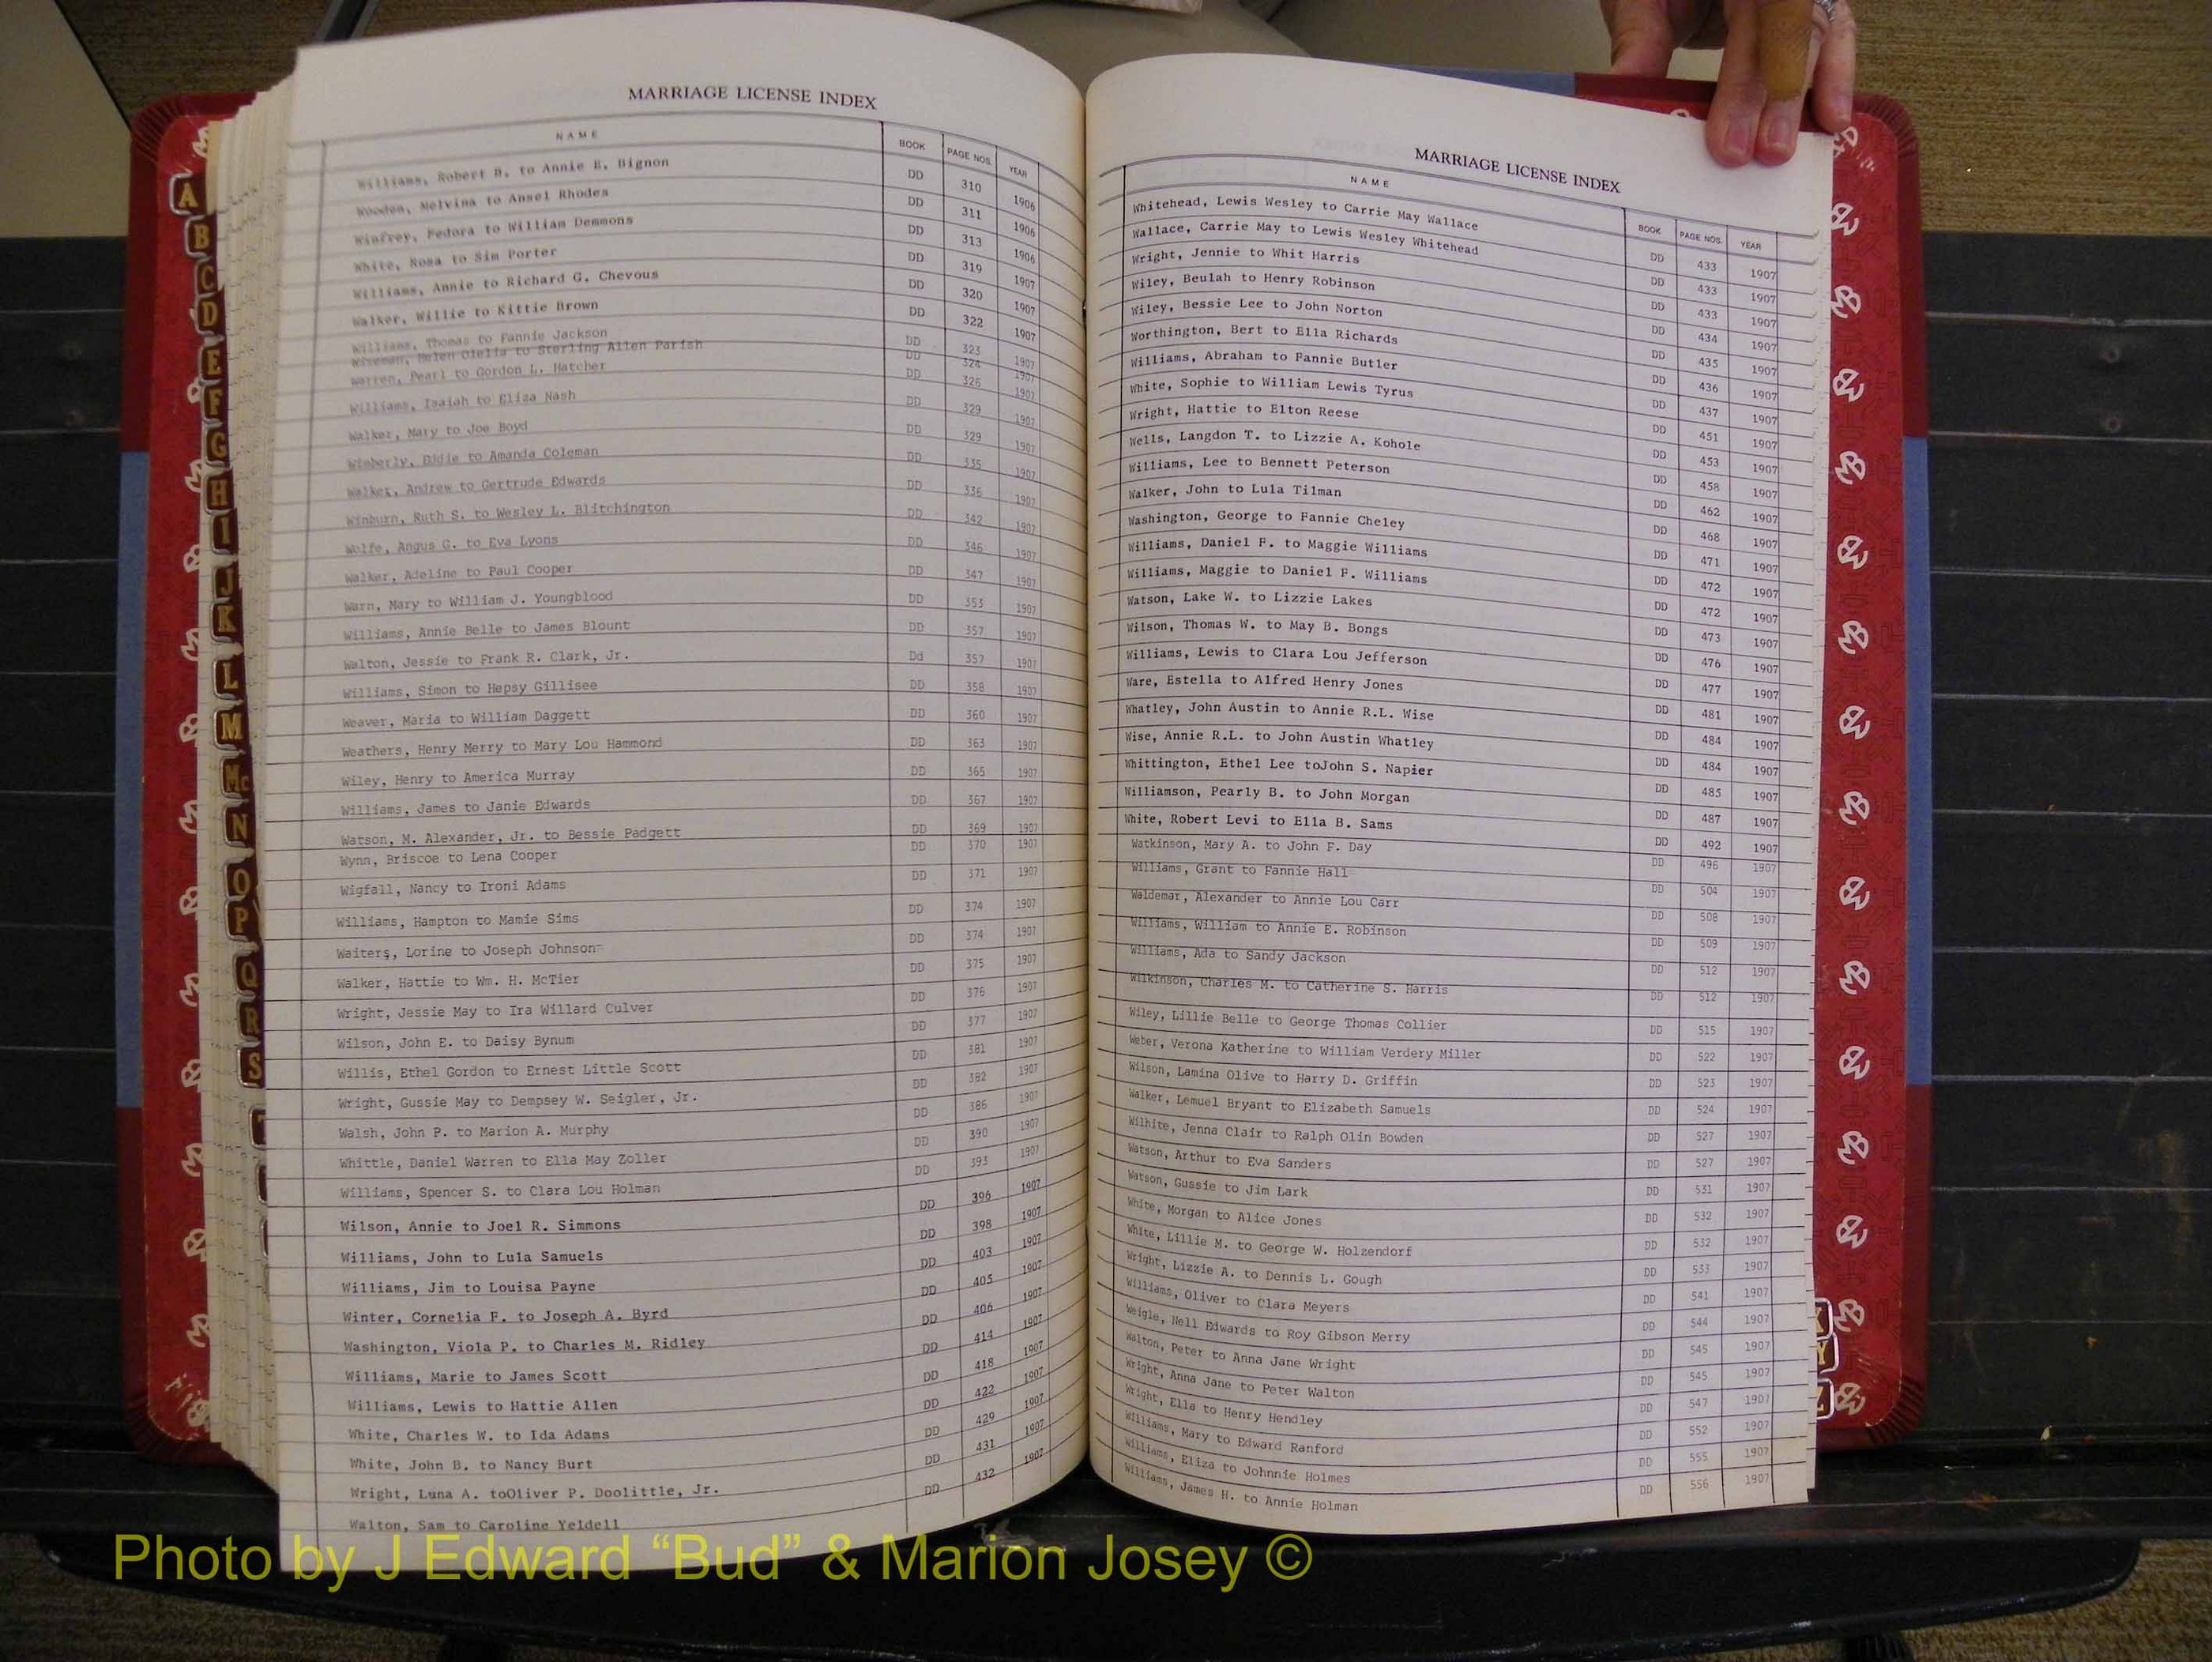 MARRIAGE LICENSE INDEX
NAME BOOK PAGE NOS. YEAR
Williams, Robert B. to Annie E. Bignon DD 310 1906
Wooden, Melvina to Ansel Rhodes DD 311 1906
Winfrey, Fedora to William Demmons DD 313 1906
White, Rosa to Sim Porter DD 319 1907
Williams, Annie to Richard G. Chevous DD 320 1907
Walker, Willie to Kittie Brown DD 322 1907
Williams, Thomas to Fannie Jackson DD 323 1907
Wiseman, Helen Olelia to Sterling Allen Parish DD 324 1907
Warren, Pearl to Gordon L. Hatcher DD 326 1907
Williams, Isaiah to Eliza Nash DD 329 1907
Walker, Mary to Joe Boyd DD 329 1907
Wimberly, Eddie to Amanda Coleman DD 335 1907
Walker, Andrew to Gertrude Edwards DD 336 1907
Winburn, Ruth S. to Wesley L. Blitchington DD 342 1907
Wolfe, Angus G. to Eva Lyons DD 346 1907
Walker, Adeline to Paul Cooper DD 347 1907
Warn, Mary to William J. Youngblood DD 353 1907
Williams, Annie Belle to James Blount DD 357 1907
Walton, Jessie to Frank R. Clark, Jr. Dd 357 1907
Williams, Simon to Hepsy Gillisee DD 358 1907
Weaver, Maria to William Daggett DD 360 1907
Weathers, Henry Merry to Mary Lou Hammond DD 363 1907
Wiley, Henry to America Murray DD 365 1907
Williams, James to Janie Edwards DD 367 1907
Watson, M. Alexander, Jr. to Bessie Padgett DD 369 1907
Wynn, Briscoe to Lena Cooper DD 370 1907
Wigfall, Nancy to Ironi Adams DD 371 1907
Williams, Hampton to Mamie Sims DD 374 1907
Waiters, Lorine to Joseph Johnson DD 374 1907
Walker, Hattie to Wm. H. McTier DD 375 1907
Wright, Jessie May to Ira Willard Culver DD 376 1907
Wilson, John E. to Daisy Bynum DD 377 1907
Willis, Ethel Gordon to Ernest Little Scott DD 381 1907
Wright, Gussie May to Dempsey W. Seigler, Jr. DD 382 1907
Walsh, John P. to Marion A. Murphy DD 386 1907
Whittle, Daniel Warren to Ella May Zoller DD 390 1907
Williams, Spencer S. to Clara Lou Holman DD 393 1907
Wilson, Annie to Joel R. Simmons DD 396 1907
Williams, John to Lula Samuels DD 398 1907
Williams, Jim to Louisa Payne DD 403 1907
Winter, Cornelia F. to Joseph A. Byrd DD 405 1907
Washington, Viola P. to Charles M. Ridley DD 406 1907
Williams, Marie to James Scott DD 414 1907
Williams, Lewis to Hattie Allen DD 418 1907
White, Charles W. to Ida Adams DD 422 1907
White, John B. to Nancy Burt DD 429 1907
Wright, Luna A. toOliver P. Doolittle, Jr. DD 431 1907
Walton, Sam to Caroline Yeldell DD 432 1907
MARRIAGE LICENSE INDEX
NAME BOOK PAGE NOS. YEAR
Whitehead, Lewis Wesley to Carrie May Wallace DD 433 1907
Wallace, Carrie May to Lewis Wesley Whitehead DD 433 1907
Wright, Jennie to Whit Harris DD 433 1907
Wiley, Beulah to Henry Robinson DD 434 1907
Wiley, Bessie Lee to John Norton DD 435 1907
Worthington, Bert to Ella Richards DD 436 1907
Williams, Abraham to Fannie Butler DD 437 1907
White, Sophie to William Lewis Tyrus DD 451 1907
Wright, Hattie to Elton Reese DD 453 1907
Wells, Langdon T. to Lizzie A. Kohole DD 458 1907
Williams, Lee to Bennett Peterson DD 462 1907
Walker, John to Lula Tilman DD 468 1907
Washington, George to Fannie Cheley DD 471 1907
Williams, Daniel F. to Maggie Williams DD 472 1907
Williams, Maggie to Daniel F. Williams DD 472 1907
Watson, Lake W. to Lizzie Lakes DD 473 1907
Wilson, Thomas W. to May B. Bongs DD 476 1907
Williams, Lewis to Clara Lou Jefferson DD 477 1907
Ware, Estella to Alfred Henry Jones DD 481 1907
Whatley, John Austin to Annie R.L. Wise DD 484 1907
Wise, Annie R.L. to John Austin Whatley DD 484 1907
Whittington, Ethel Lee toJohn S. Napier DD 485 1907
Williamson, Pearly B. to John Morgan DD 487 1907
White, Robert Levi to Ella B. Sams DD 492 1907
Watkinson, Mary A. to John F. Day DD 496 1907
Williams, Grant to Fannie Hall DD 504 1907
Waldemar, Alexander to Annie Lou Carr DD 508 1907
Williams, William to Annie E. Robinson DD 509 1907
Williams, Ada to Sandy Jackson DD 512 1907
Wilkinson, Charles M. to Catherine S. Harris DD 512 1907
Wiley, Lillie Belle to George Thomas Collier DD 515 1907
Weber, Verona Katherine to William Verdery Miller DD 522 1907
Wilson, Lamina Olive to Harry D. Griffin DD 523 1907
Walker, Lemuel Bryant to Elizabeth Samuels DD 524 1907
Wilhite, Jenna Clair to Ralph Olin Bowden DD 527 1907
Watson, Arthur to Eva Sanders DD 527 1907
Watson, Gussie to Jim Lark DD 531 1907
White, Morgan to Alice Jones DD 532 1907
White, Lillie M. to George W. Holzendorf DD 532 1907
Wright, Lizzie A. to Dennis L. Gough DD 533 1907
Williams, Oliver to Clara Meyers DD 541 1907
Weigle, Nell Edwards to Roy Gibson Merry DD 544 1907
Walton, Peter to Anna Jane Wright DD 545 1907
Wright, Anna Jane to Peter Walton DD 545 1907
Wright, Ella to Henry Hendley DD 547 1907
Williams, Mary to Edward Ranford DD 552 1907
Williams, Eliza to Johnnie Holmes DD 555 1907
Williams, James H. to Annie Holman DD 556 1907
A
B
C
D
E
F
G
H
I
J
K
L
M
Mc
N
O
P
Q
R
S
T
X
Y
Z
Photo by J Edward “Bud” & Marion Josey ©